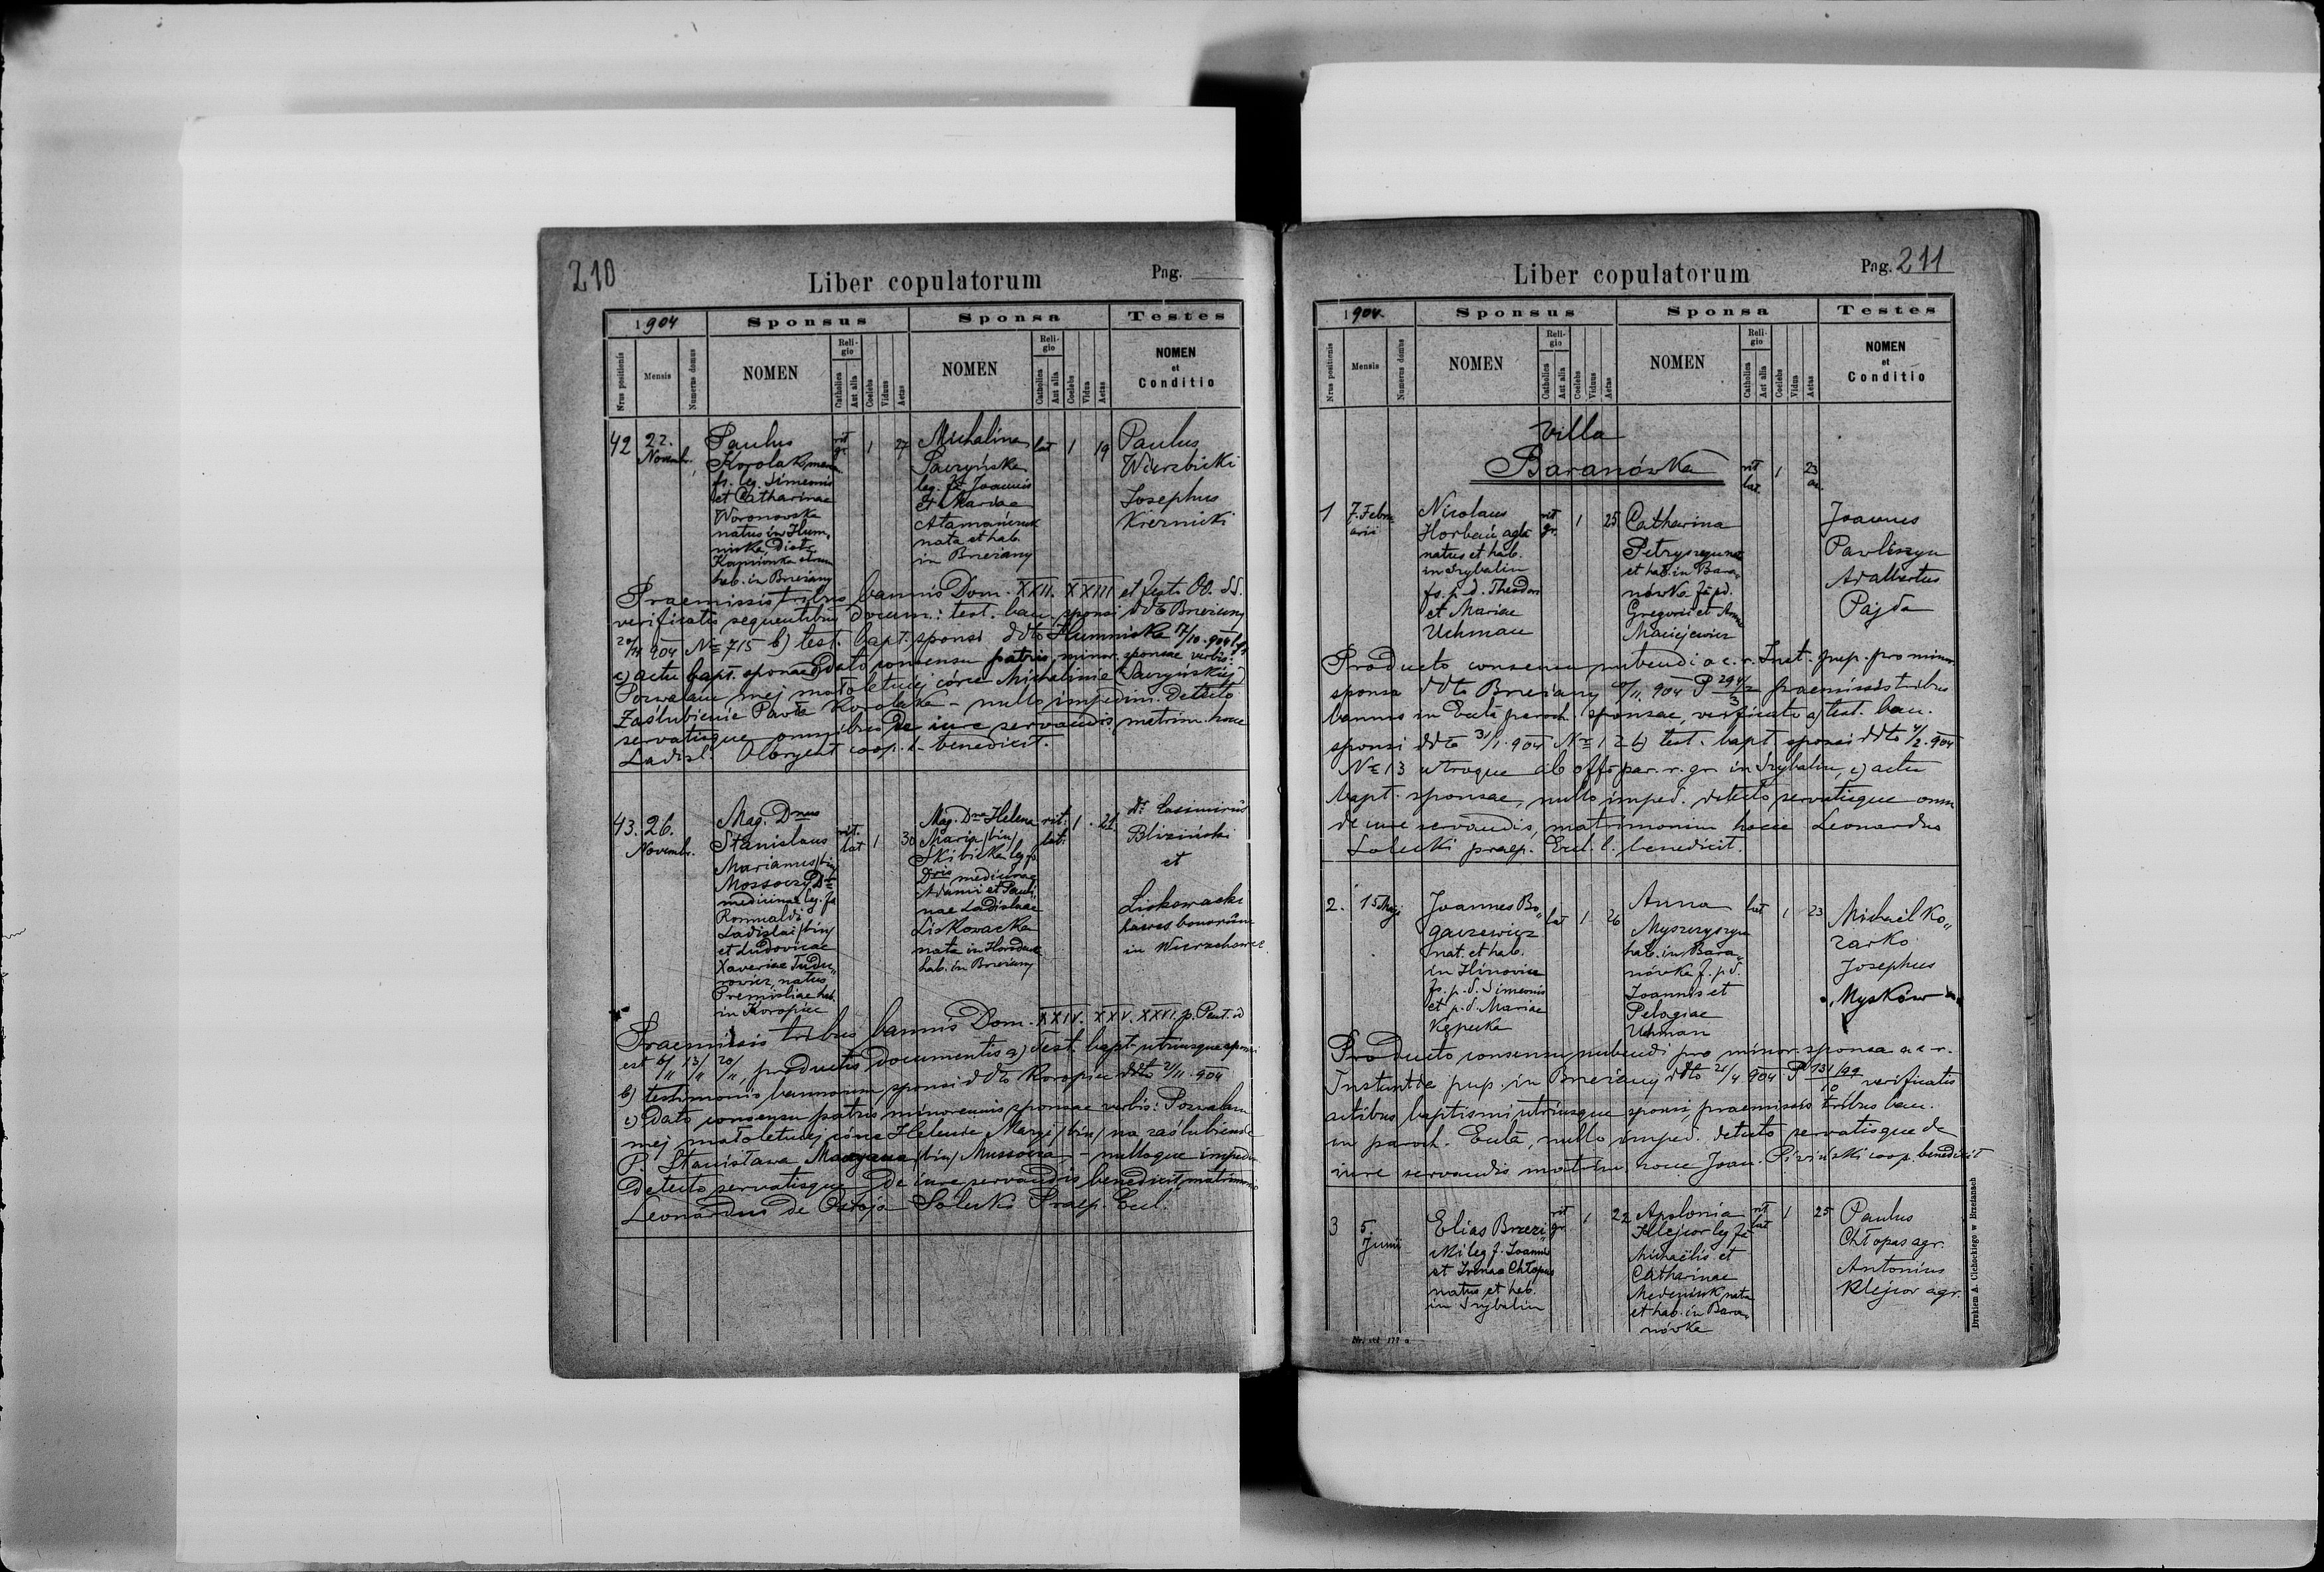 210
Liber copulatorum
Pag.
1904
Sponsus
Sponsa
Testes
Nrus positionis
Mensis
Numerus domus
NOMEN
Religio
Catholica
Aut alia
Coelebs
Viduus
Aetas
NOMEN
Religio
Catholica
Aut alia
Coelebs
Vidua
Aetas
NOMEN
et
Conditio
42
22.
Novembr.
Paulus
Korolak
fs. leg. Simeonis
et Catharinae
Woronowska
natus in Hum,
niska, Distr.
Kamionka strum
hab. in Brzeżany
rit
gr.
1
27
Michalina
Pauzyńska
leg. fa Joannis
et Mariae
Atamańczuk
nata et hab.
in Brzeżany
lat
1
19
Paulus
Wierzbicki
Josephus
Kiernicki
Praemissis tribus bannis Dom. XXII. XXIII et fest. OO. SS.
verificatis sequentibus docum.: test. ban. sponsi ddto Brzeżany
904 № 715 b) test. bapt. sponsi ddto Humniska 17/10. 904
c) actu bapt. sponsae dato consensu patris minor. sponsae verbis:
Pozwalam mej małoletniej córce Michalinie
Zaślubienie Pawła Korolaka - nullo impedim. detecto
servatisque omnibus de iure servandis matrim. hocce
Ladisl. Olbrycht coop. l. benedicit.
43.
26.
Novembr.
Mag. Dnus
Stanislaus
Marianus /bin/
Mossoczy Dr.
medicinae leg. fs
Romualdi
Ladislai /bin/
et Ludovicae
Xaveriae Tudu,
rowicz, natus
Premisliae hab.
in Koropiec
rit.
lat
1
30
Mag. Dna Helena
Maria /bin/
Skibicka leg. fa
Dris medicinae
Adami et Pauli,
nae Ladislaae
Liskowacka
nata in
hab. in Brzeżany
rit.
lat.
1
21
Dr. Casimirus
Bliziński
et
Liskowacki
haeres bonorum
in
Praemissis tribus bannis Dom. XXIV. XXV. XXVI. p. Pent. id
est 6/11 13/11 20/11, productis documentis a) test. bapt. utriusque sponsi
b) testimonio bannorum sponsi ddto Koropiec ddto 904
c) Dato consensu patris minorennis sponsae verbis: Pozwalam
mej małoletniej córce Helenie Maryi /bin/ na zaślubienie
P. Stanisława Maryana /bin/ Mossocza - nulloque impedim
detecto servatisque de iure servandis benedicit matrimonio
Leonardus de Ostoja - Solecki Praep. Eccl.
Liber copulatorum
Pag. 211
1904.
Sponsus
Sponsa
Testes
Nrus positionis
Mensis
Numerus domus
NOMEN
Religio
Catholica
Aut alia
Coelebs
Viduus
Aetas
NOMEN
Religio
Catholica
Aut alia
Coelebs
Vidua
Aetas
NOMEN
et
Conditio
Villa
Baranówka
1
7. Febru
arii
Nicolaus
Horbań
natus et hab.
in Trybalin
fs. p. d. Theodori
et Mariae
Uchman
rit
gr.
1
25
Catharina
Petryszyn nat
et hab. in Bara,
nówka fa pd.
Gregorii et Annae
Maciejewicz
rit
lat.
1
23
Joannes
Pawliszyn
Adalbertus
Pajda
Producto consensu nubendi a c. r. Inst. pup. pro minor.
sponsa ddto Brzeżany 904 P praemissis tribus
bannis in Eccla paroch. sponsae, verificato a) test. ban.
sponsi ddto 31/1. 904 № 12 b) test. bapt. sponsi ddto 4/2. 904
№ 13 utroque ab offo par. r. gr. in Trybalin, c) actu
bapt. sponsae, nullo imped. detecto servatisque omn
de iure servandis, matrimonium hocce Leonardus
Solecki praep. Eccl. l. benedicit.
2.
15 Maji
Joannes Bo,,
gaczewicz
nat. et hab.
in Hinowice
fs. p. d. Simeonis
et p. d. Mariae
Kępucka
lat
1
26
Anna
Myszczyszyn
hab. in Bara,
nówka f. p. d.
Joannis et
Pelagiae
Uchman
lat
1
23
Michaël Ko,,
zarko
Josephus
Myśków
Producto consensu nubendi pro minor. sponsa a c. r.
Instantia pup. in Brzeżany ddto 904 P verificatis
actibus baptismi utriusque sponsi, praemissis tribus ban.
in paroch. Eccla, nullo imped. detecto servatisque de
iure servandis matrim hocce Joan. coop. benedicit
3
5
Junii
Elias Brzezi,
cki leg. f. Joannis
et Irenae Chłopas
natus et hab.
in Trybalin
rit
gr.
1
22
Apolonia
Klejor leg fa
Michaëlis et
Catharinae
nata
et hab. in Bara,
nówka
rit
lat
1
25
Paulus
Chłopas agr.
Antonius
Klejor agr.
Drukiem A. Cichockiego w Brzeżanach